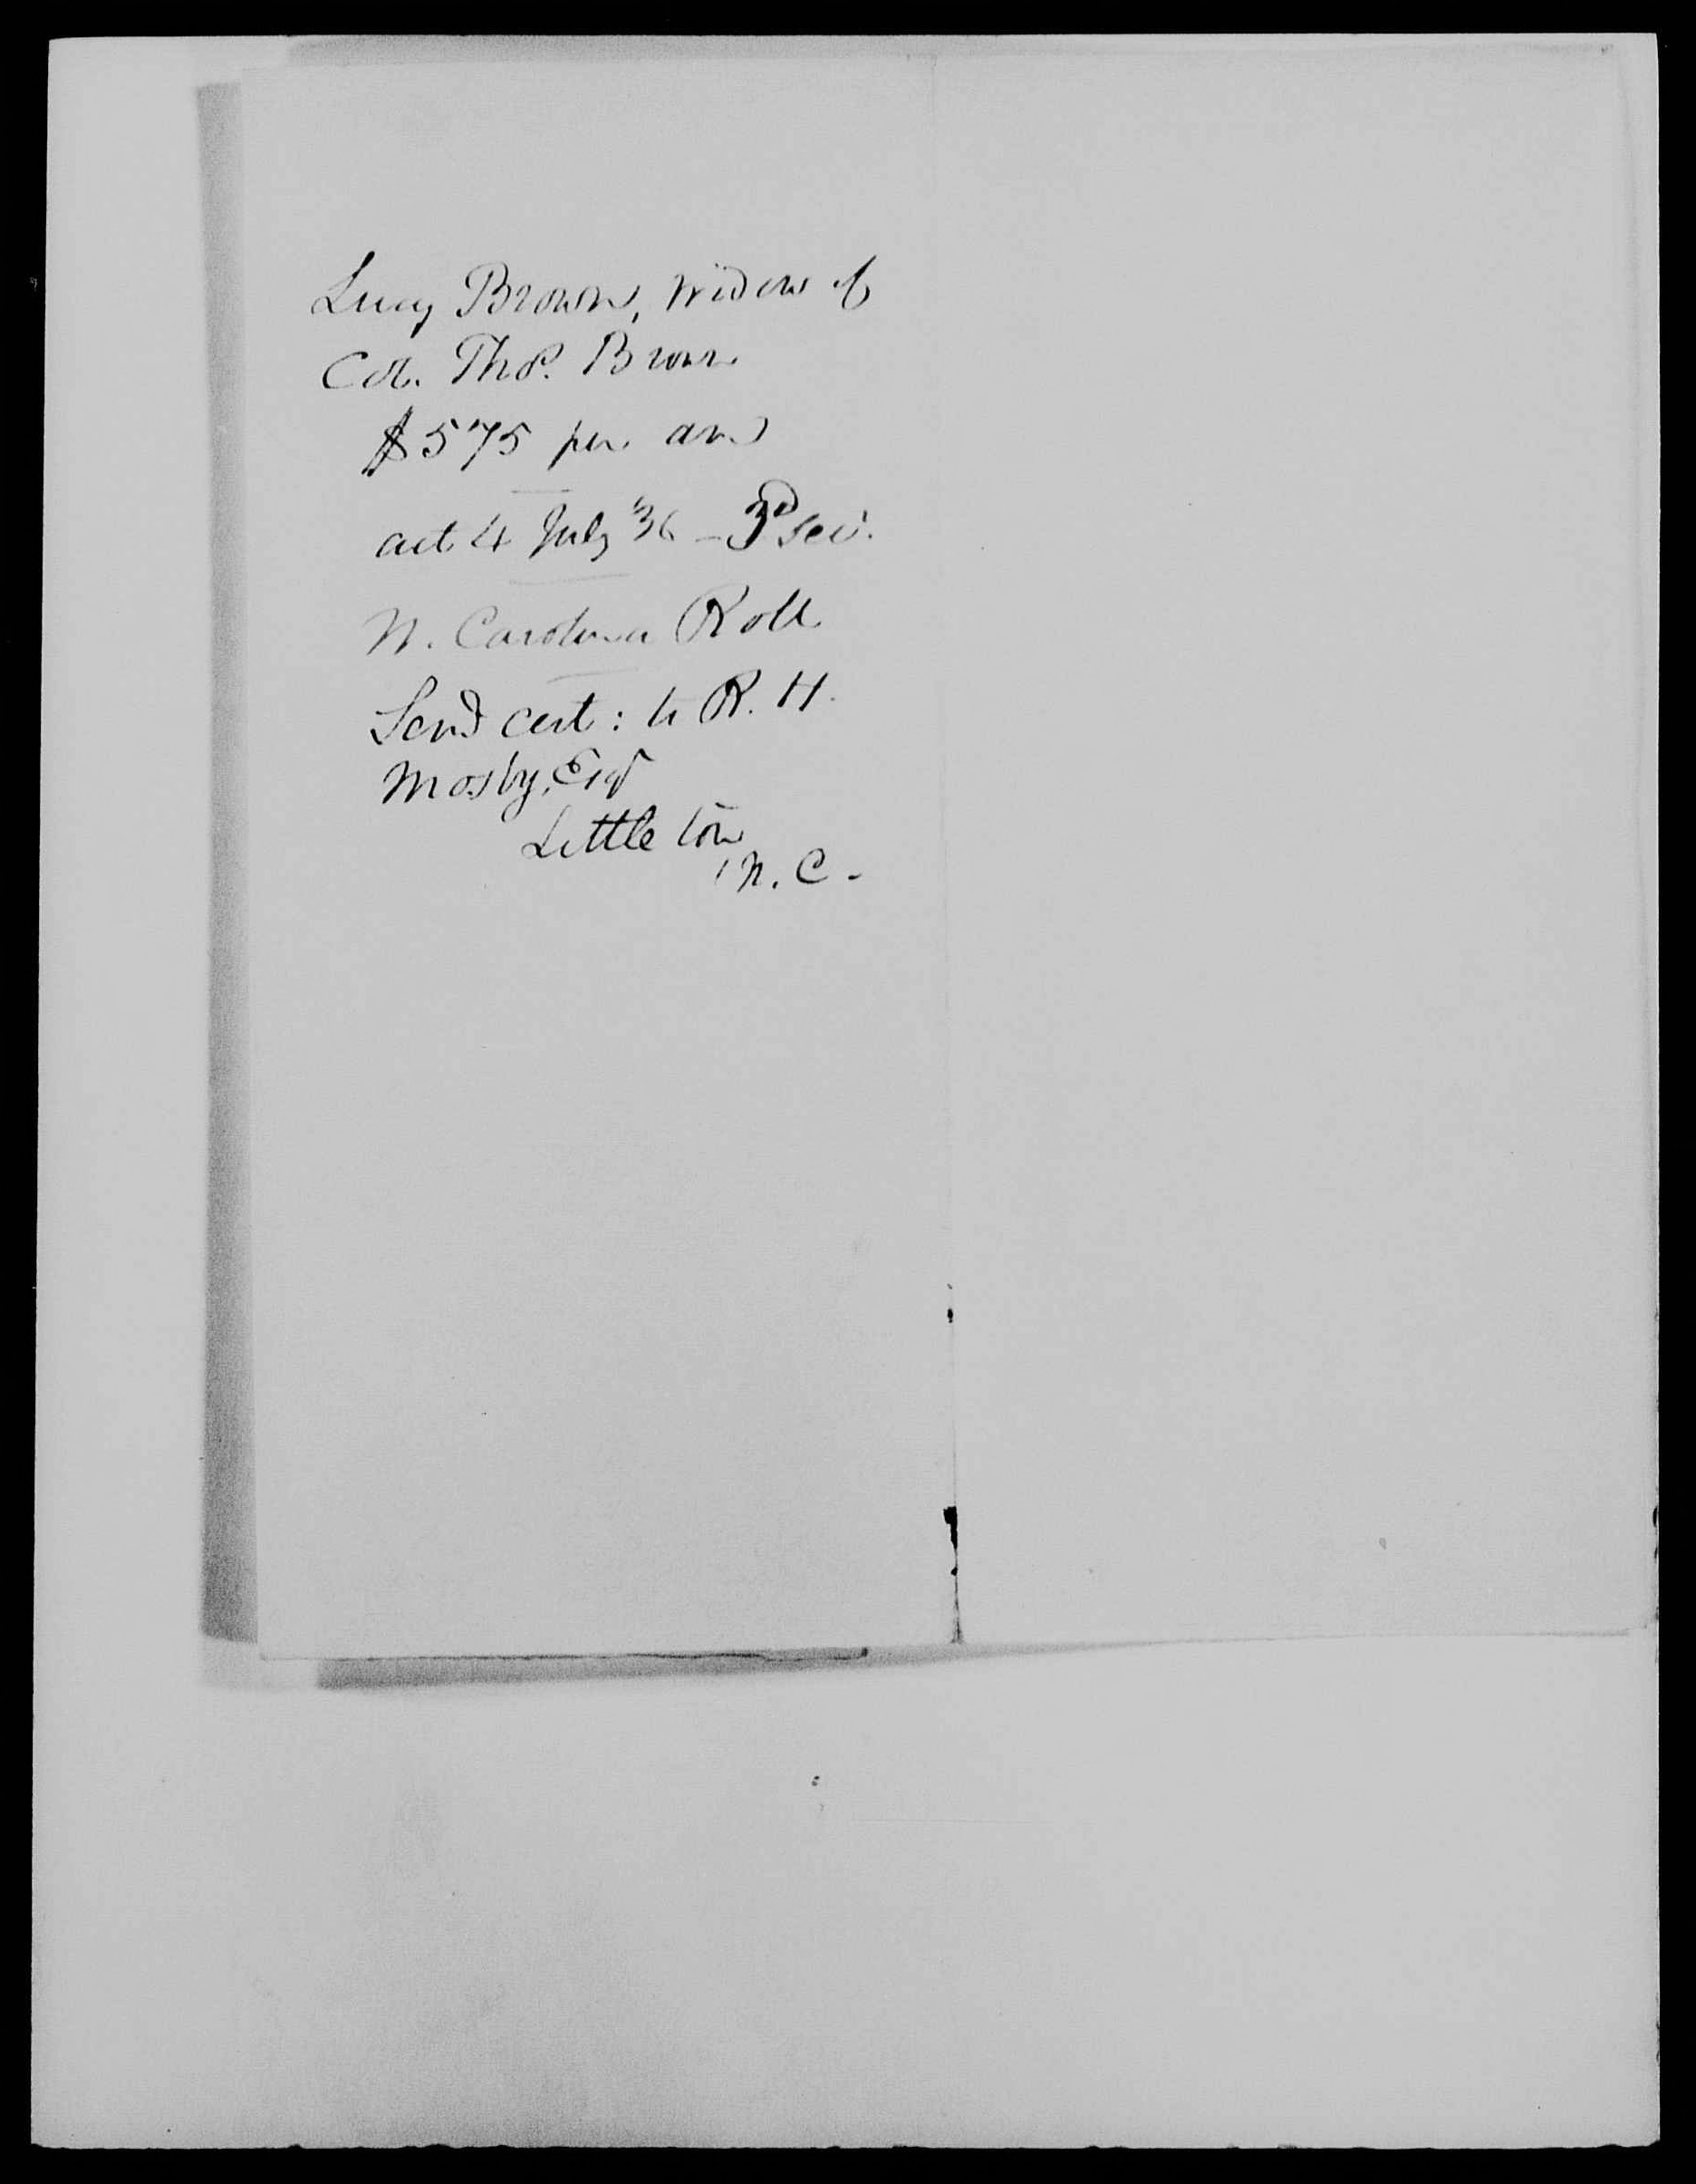 Lucy Brown, widow of
Col. Thos. Brown
$575 per ann
act 4 July '36 - 3d sec.
N. Carolina Roll
Send cert: to R. H.
Mosby, Esqr
Littleton
N. C -